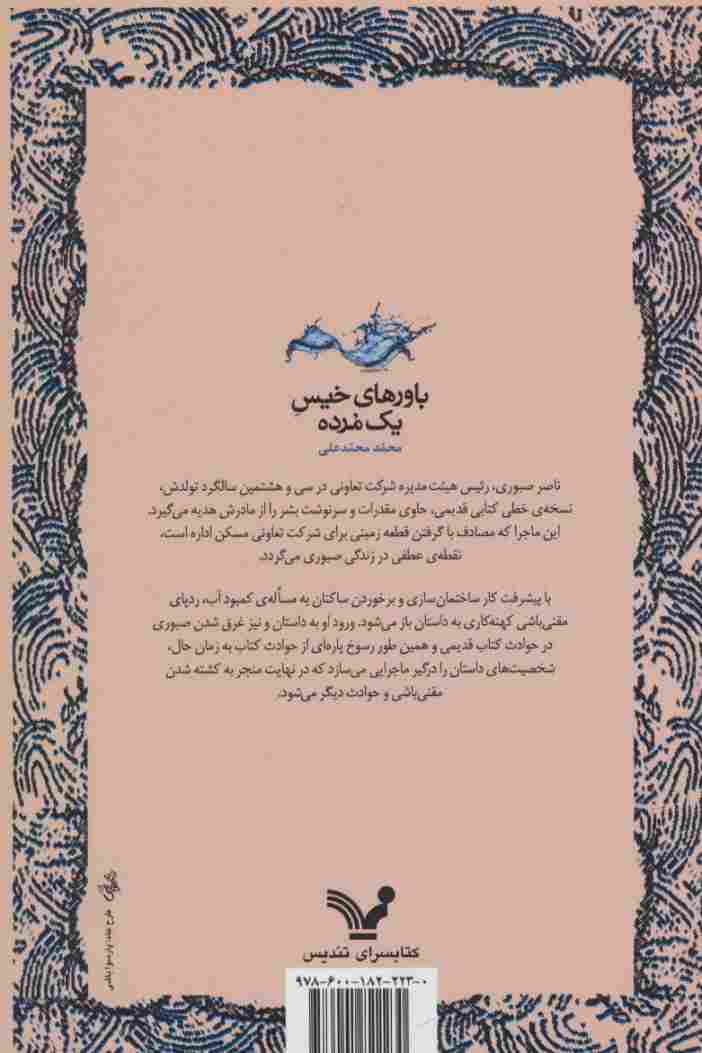 باورهای خیسِ
یک مُرده
محمّد محمّدعلی
ناصر صبوری، رئیس هیئت مدیره شرکت تعاونی در سی و هشتمین سالگرد تولدش،
نسخه‌ی خطی کتابی قدیمی، حاوی مقدرات و سرنوشت بشر را از مادرش هدیه می‌گیرد.
این ماجرا که مصادف با گرفتن قطعه زمینی برای شرکت تعاونی مسکن اداره است،
نقطه‌ی عطفی در زندگی صبوری می‌گردد.
با پیشرفت کار ساختمان‌سازی و برخوردن ساکنان به مسأله‌ی کمبود آب، ردپای
مقنی‌باشی کهنه‌کاری به داستان باز می‌شود. ورود او به داستان و نیز غرق شدن صبوری
در حوادث کتاب قدیمی و همین طور رسوخ پاره‌ای از حوادث کتاب به زمان حال،
شخصیت‌های داستان را درگیر ماجرایی می‌سازد که در نهایت منجر به کشته شدن
مقنی‌باشی و حوادث دیگر می‌شود.
طرح جلد:
کتابسرای تندیس
۹۷۸-۶۰۰-۱۸۲-۲۲۳-۰